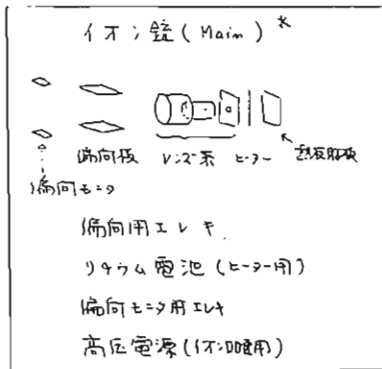 イオン銃(Main)*
偏向板 レンズ系 ヒーター 熱反射板
偏向モニタ
偏向用エレキ.
リチウム電池(ヒーター用)
偏向モニタ用エレキ
高圧電源(イオン加速用)